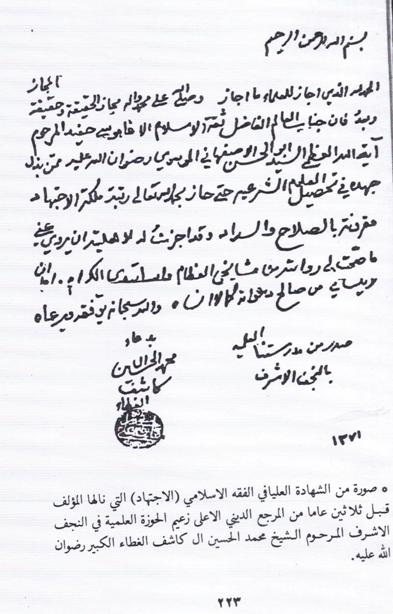 بسم الله الرحمن الرحيم
الحمد لله الذي اجاز للعلماء ما اجاز وصلى الله على محمد واله مجاز الحقيقة وحقيقة المجاز
وبعد فان جناب العالم الفاضل ثقة الاسلام الاقا موسى حفيد المرحوم
آية الله العظمى السيد ابو الحسن الاصفهاني الموسوي رضوان الله عليه ممن بذل
جهده في تحصيل العلوم الشرعية حتى حاز بحمد الله تعالى رتبة ملكة الاجتهاد
مقرونة بالصلاح والسداد وقد اجزت له لاهليته ان يروي عني
ما صحت لي روايته من مشايخي العظام واساتذتي الكرام
من صالح دعواته كما لا انساه والله سبحانه يوفقه ويرعاه
صدر من مدرستنا العلمية
بالنجف الاشرف
١٣٧١
بدعاء
محمد الحسين
كاشف
الغطاء
● صورة من الشهادة العليا في الفقه الاسلامي (الاجتهاد) التي نالها المؤلف
قبل ثلاثين عاما من المرجع الديني الاعلى زعيم الحوزة العلمية في النجف
الاشرف المرحوم الشيخ محمد الحسين ال كاشف الغطاء الكبير رضوان
الله عليه.
٢٢٣